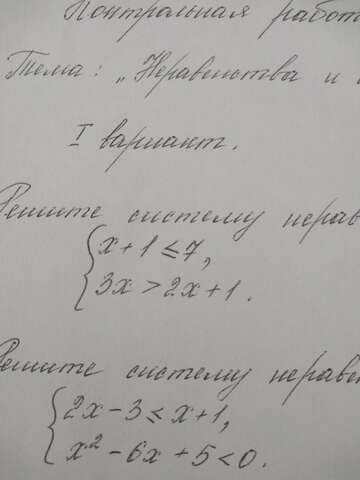 Контрольная работ
Тема: „Неравенства и
I вариант.
Решите систему нерав
{ x + 1 ≤ 7,
3x > 2x + 1.
Решите систему нераве
{ 2x - 3 ≤ x + 1,
x² - 6x + 5 < 0.